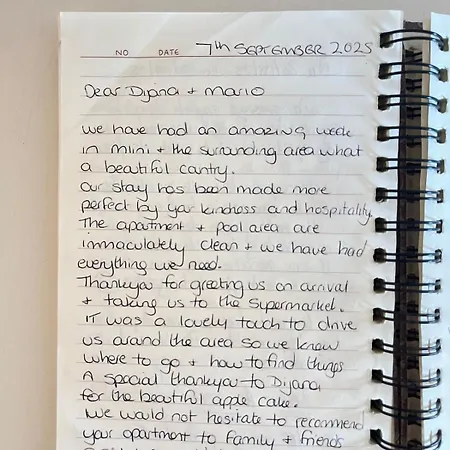 NO DATE 7th SEPTEMBER 2025
Dear Dijana + Mario
We have had an amazing week
in Mlini + the surrounding area what
a beautiful cantry.
Our stay has been made more
perfect by your kindness and hospitality.
The apartment + pool area are
immaculately clean + we have had
everything we need.
Thankyou for greeting us on arrival
+ taking us to the supermarket.
IT was a lovely touch to drive
us around the area so we knew
where to go + how to find things
A special thankyou to Dijana
for the beautiful apple cake.
We would not hesitate to recommend
your apartment to family + friends